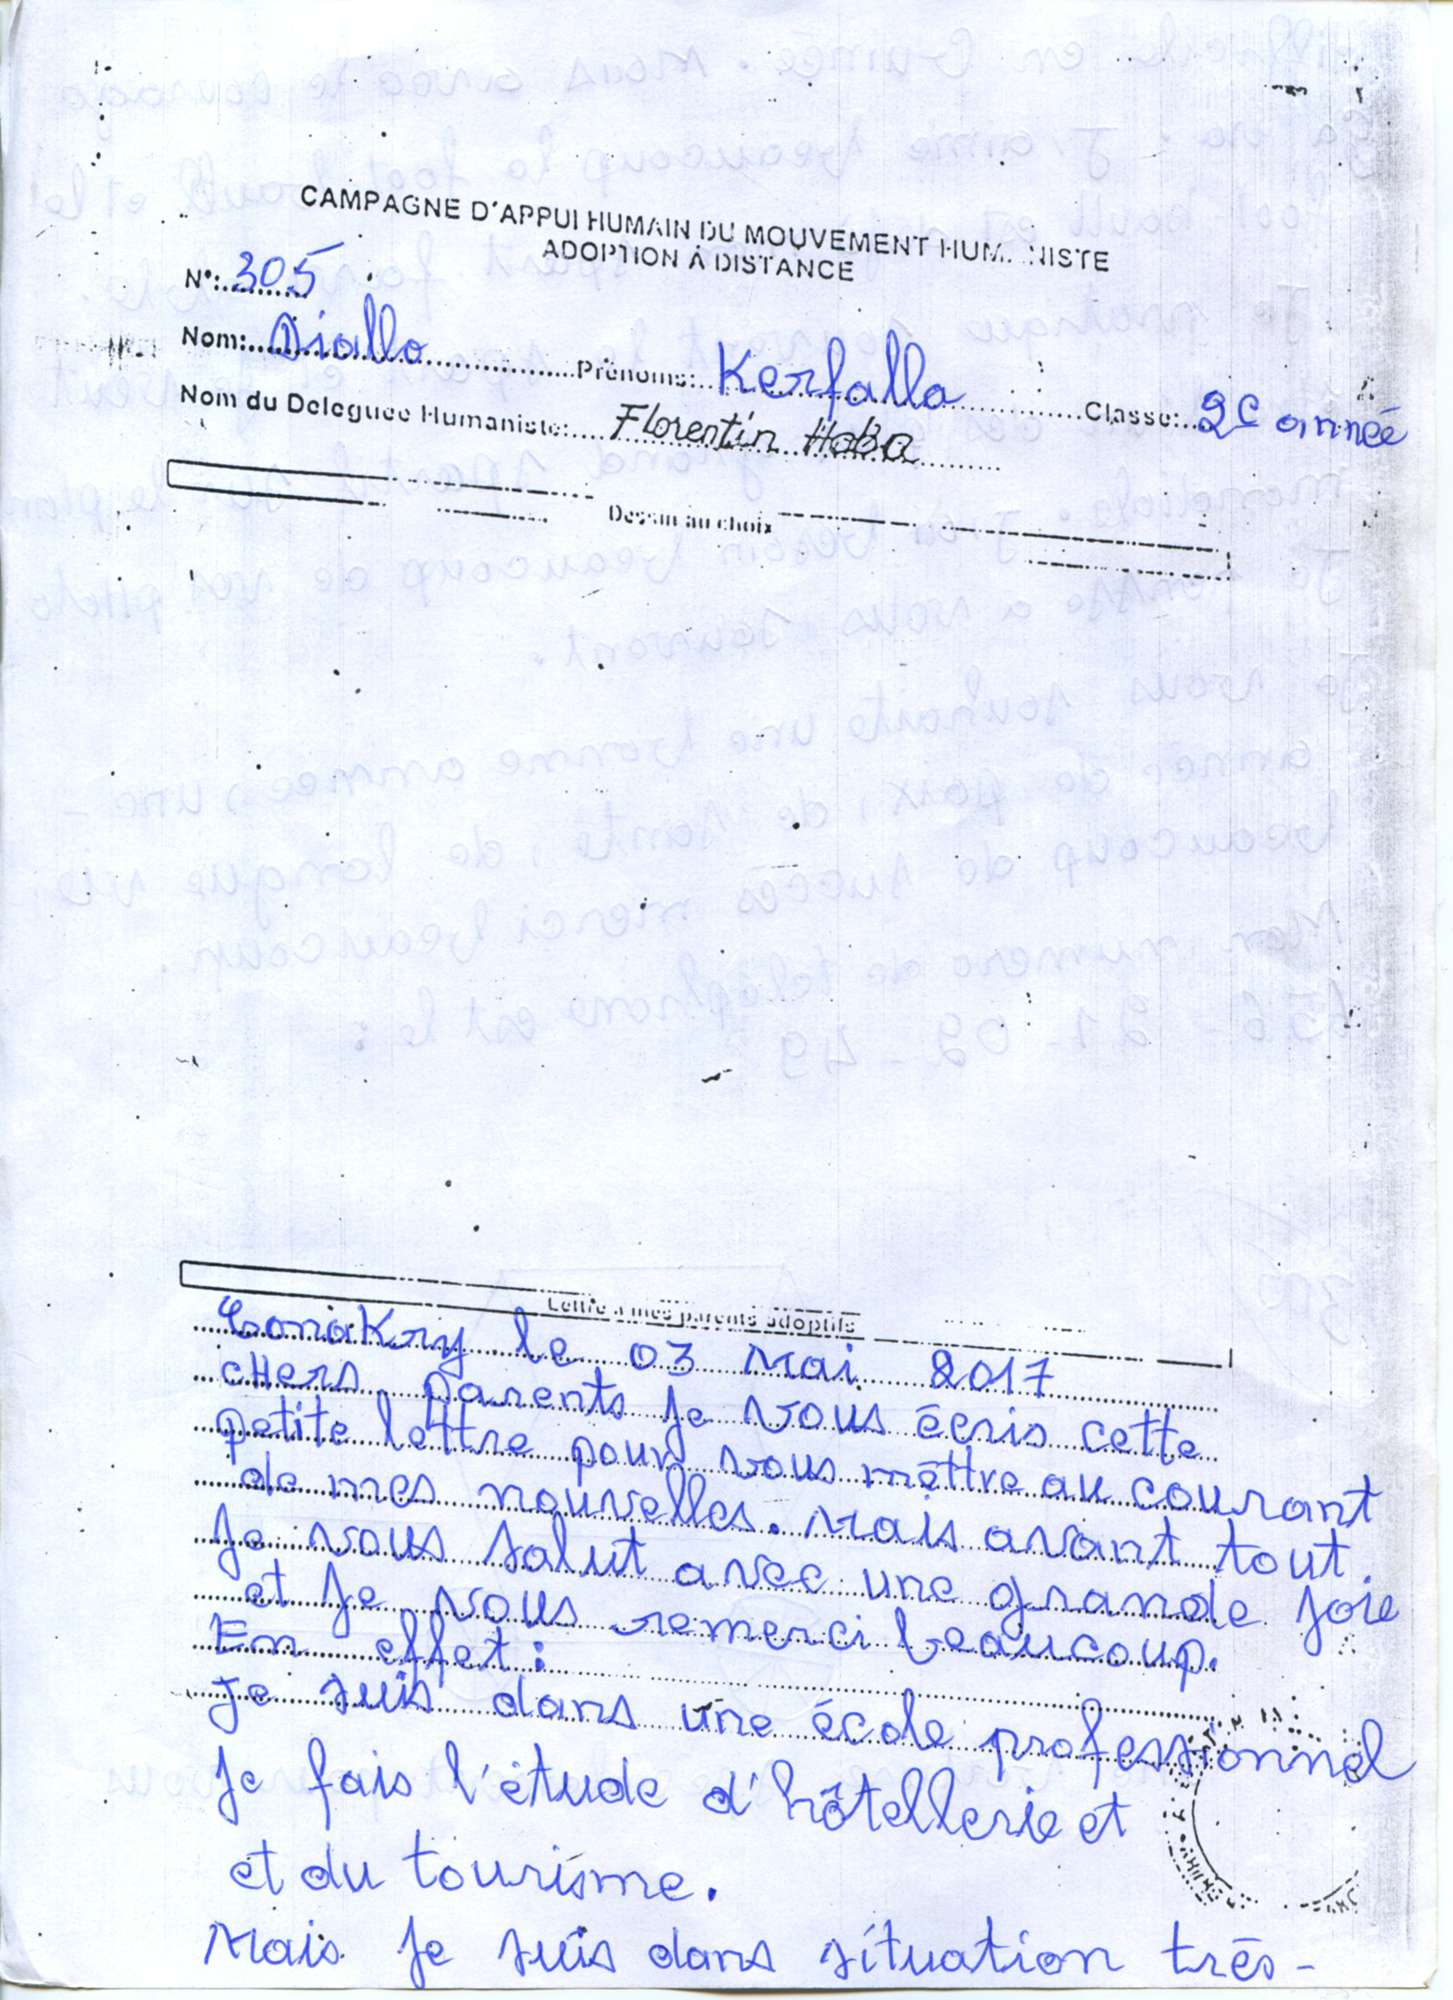 CAMPAGNE D'APPUI HUMAIN DU MOUVEMENT HUM NISTE
ADOPTION À DISTANCE
N°: 305
Nom: Diallo Prénoms: Kerfalla Classe: 2e année
Nom du Deleguée Humaniste: Florentin Haba
Dessin au choix
Lettre à mes parents adoptifs
Conakry le 03 Mai 2017
CHers parents je vous écris cette
petite lettre pour vous mettre au courant
de mes nouvelles. Mais avant tout
je vous salut avec une grande joie
et je vous remerci beaucoup.
En effet:
je suis dans une école professionnel
je fais l'étude d'hôtellerie et
et du tourisme.
Mais je suis dans situation très-